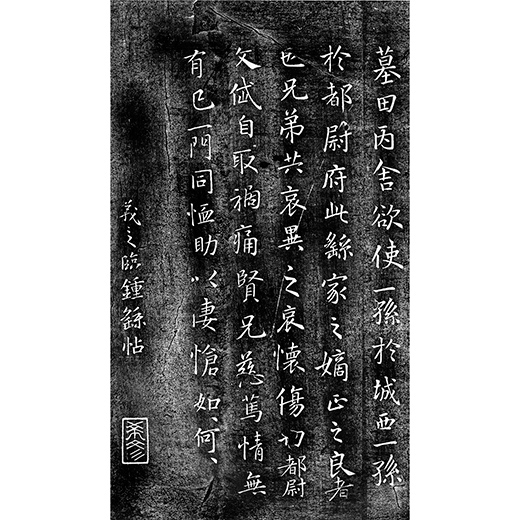 墓田丙舍欲使一孫於城西一孫
於都尉府此繇家之嫡正之良者
也兄弟共哀異之哀懷傷切都尉
文岱自取禍痛賢兄慈篤情無
有已一門同恤助以悽愴如何
羲之臨鍾繇帖